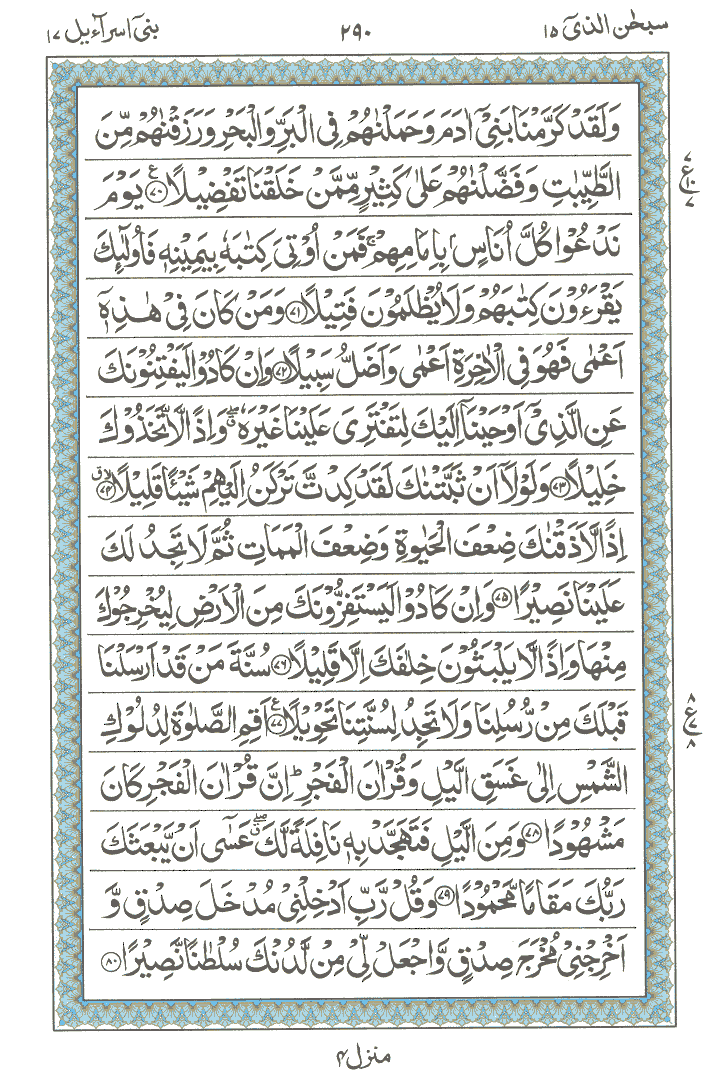 سبحٰن الذیٓ ۱۵
۲۹۰
بنیٓ اسرآءیل ۱۷
وَلَقَدْ كَرَّمْنَا بَنِیْۤ اٰدَمَ وَحَمَلْنٰهُمْ فِی الْبَرِّ وَالْبَحْرِ وَرَزَقْنٰهُمْ مِّنَ
الطَّیِّبٰتِ وَفَضَّلْنٰهُمْ عَلٰی كَثِیْرٍ مِّمَّنْ خَلَقْنَا تَفْضِیْلًا ۷۰ ع یَوْمَ
۷ ع ۱۰ ۷
نَدْعُوْا كُلَّ اُنَاسٍۭ بِاِمَامِهِمْ ۚ فَمَنْ اُوْتِیَ كِتٰبَهٗ بِیَمِیْنِهٖ فَاُولٰٓىِٕكَ
یَقْرَءُوْنَ كِتٰبَهُمْ وَلَا یُظْلَمُوْنَ فَتِیْلًا ۷۱ وَمَنْ كَانَ فِیْ هٰذِهٖۤ
اَعْمٰی فَهُوَ فِی الْاٰخِرَةِ اَعْمٰی وَاَضَلُّ سَبِیْلًا ۷۲ وَاِنْ كَادُوْا لَیَفْتِنُوْنَكَ
عَنِ الَّذِیْۤ اَوْحَیْنَاۤ اِلَیْكَ لِتَفْتَرِیَ عَلَیْنَا غَیْرَهٗ ۖۗ وَاِذًا لَّاتَّخَذُوْكَ
خَلِیْلًا ۷۳ وَلَوْلَاۤ اَنْ ثَبَّتْنٰكَ لَقَدْ كِدْتَّ تَرْكَنُ اِلَیْهِمْ شَیْـًٔا قَلِیْلًا ۷۴ لاق
اِذًا لَّاَذَقْنٰكَ ضِعْفَ الْحَیٰوةِ وَضِعْفَ الْمَمَاتِ ثُمَّ لَا تَجِدُ لَكَ
عَلَیْنَا نَصِیْرًا ۷۵ وَاِنْ كَادُوْا لَیَسْتَفِزُّوْنَكَ مِنَ الْاَرْضِ لِیُخْرِجُوْكَ
مِنْهَا وَاِذًا لَّا یَلْبَثُوْنَ خِلٰفَكَ اِلَّا قَلِیْلًا ۷۶ سُنَّةَ مَنْ قَدْ اَرْسَلْنَا
قَبْلَكَ مِنْ رُّسُلِنَا وَلَا تَجِدُ لِسُنَّتِنَا تَحْوِیْلًا ۷۷ ع اَقِمِ الصَّلٰوةَ لِدُلُوْكِ
۸ ع ۷ ۸
الشَّمْسِ اِلٰی غَسَقِ الَّیْلِ وَقُرْاٰنَ الْفَجْرِ ؕ اِنَّ قُرْاٰنَ الْفَجْرِ كَانَ
مَشْهُوْدًا ۷۸ وَمِنَ الَّیْلِ فَتَهَجَّدْ بِهٖ نَافِلَةً لَّكَ ۖۗ عَسٰۤی اَنْ یَّبْعَثَكَ
رَبُّكَ مَقَامًا مَّحْمُوْدًا ۷۹ وَقُلْ رَّبِّ اَدْخِلْنِیْ مُدْخَلَ صِدْقٍ وَّ
اَخْرِجْنِیْ مُخْرَجَ صِدْقٍ وَّاجْعَلْ لِّیْ مِنْ لَّدُنْكَ سُلْطٰنًا نَّصِیْرًا ۸۰
منزل ۴